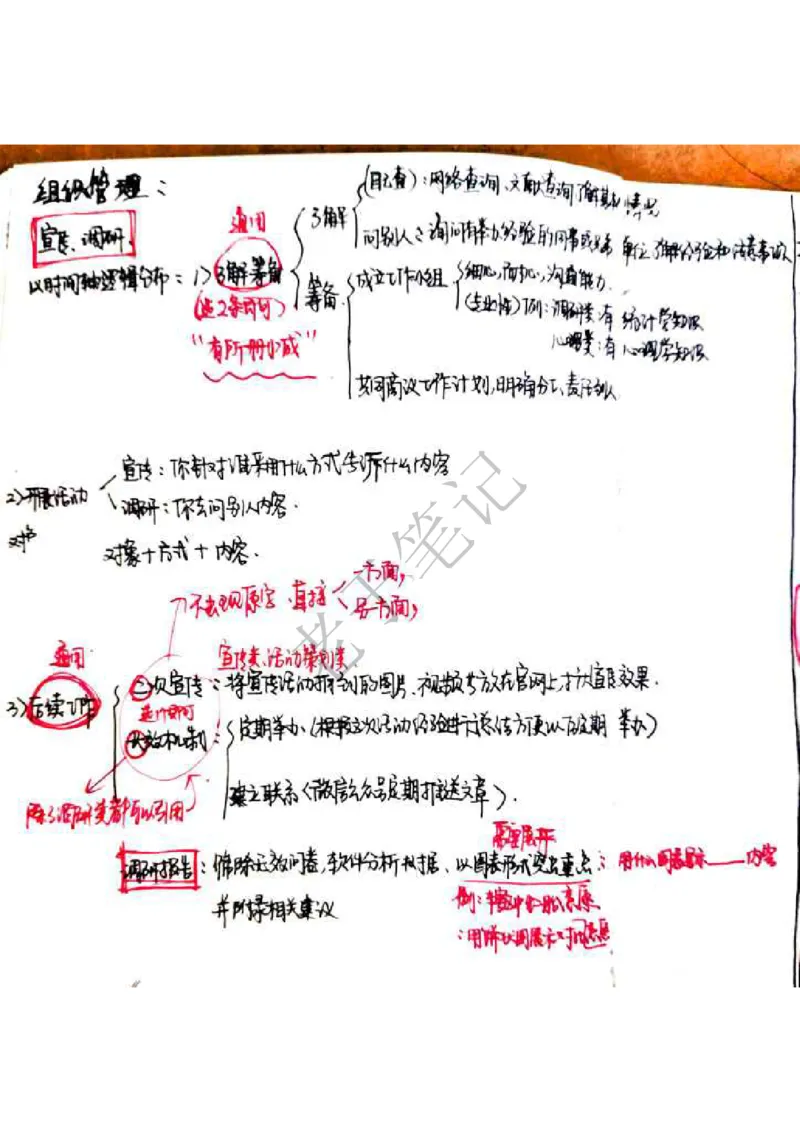 组织管理：
宣传、调研、
以时间轴逻辑分布：1>了解筹备
通用
(选2条即可)
"有所删减"
了解
(自己查)：网络查询、文献查询了解基本情况
问别人：询问有举办经验的同事或兄弟单位了解经验和注意事项
筹备
成立工作小组
细心,耐心,沟通能力.
(专业性)例：调研类:有统计学知识
心理类:有心理学知识
共同商议工作计划,明确分工、责任到人
2>开展活动
宣传：你针对谁采用什么方式告诉什么内容
调研：你去问别人内容.
对象+方式+内容.
不出现原字、直接
一方面,
另一方面,
通用
3>后续工作
宣传类、活动策划类
二次宣传：将宣传活动拍到的图片、视频等放在官网上,扩大宣传效果.
选1即可
长效机制：
定期举办(根据这次活动经验进行总结方便以后定期举办)
建立联系(微信公众号定期推送文章).
除了调研类都可以引用
调研报告：剔除无效问卷,软件分析数据、以图表形式突出重点：用什么图表展示——内容
并附录相关建议
：用饼状图展示
老于笔记